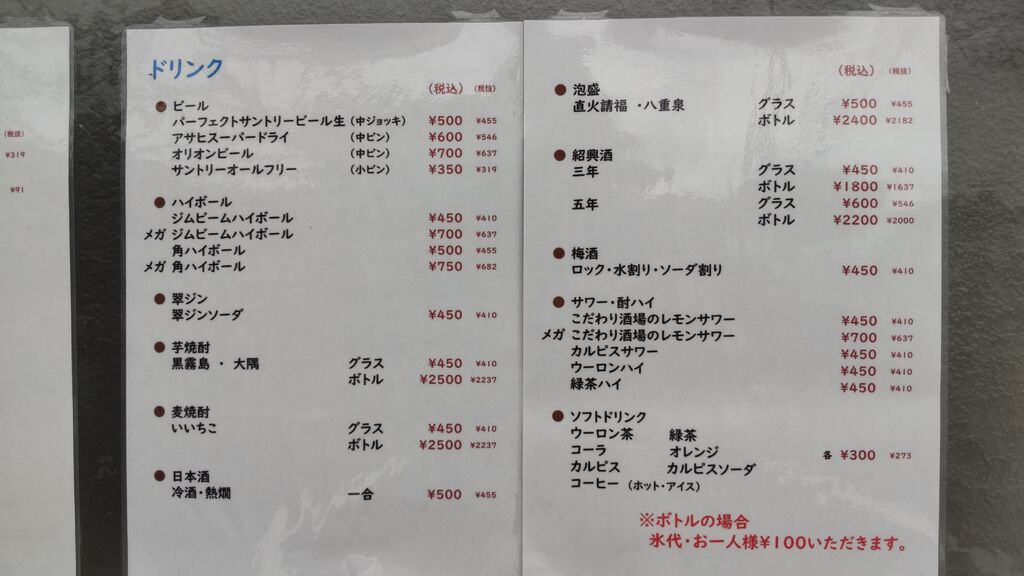 (税抜)
¥319
¥91
ドリンク
(税込) (税抜)
● ビール
パーフェクトサントリービール生 (中ジョッキ) ¥500 ¥455
アサヒスーパードライ (中ビン) ¥600 ¥546
オリオンビール (中ビン) ¥700 ¥637
サントリーオールフリー (小ビン) ¥350 ¥319
● ハイボール
ジムビームハイボール ¥450 ¥410
メガ ジムビームハイボール ¥700 ¥637
角ハイボール ¥500 ¥455
メガ 角ハイボール ¥750 ¥682
● 翠ジン
翠ジンソーダ ¥450 ¥410
● 芋焼酎
黒霧島 ・ 大隅 グラス ¥450 ¥410
ボトル ¥2500 ¥2237
● 麦焼酎
いいちこ グラス ¥450 ¥410
ボトル ¥2500 ¥2237
● 日本酒
冷酒・熱燗 一合 ¥500 ¥455
(税込) (税抜)
● 泡盛
直火請福 ・八重泉 グラス ¥500 ¥455
ボトル ¥2400 ¥2182
● 紹興酒
三年 グラス ¥450 ¥410
ボトル ¥1800 ¥1637
五年 グラス ¥600 ¥546
ボトル ¥2200 ¥2000
● 梅酒
ロック・水割り・ソーダ割り ¥450 ¥410
● サワー・酎ハイ
こだわり酒場のレモンサワー ¥450 ¥410
メガ こだわり酒場のレモンサワー ¥700 ¥637
カルピスサワー ¥450 ¥410
ウーロンハイ ¥450 ¥410
緑茶ハイ ¥450 ¥410
● ソフトドリンク
ウーロン茶 緑茶
コーラ オレンジ 各 ¥300 ¥273
カルピス カルピスソーダ
コーヒー (ホット・アイス)
※ボトルの場合
氷代・お一人様¥100いただきます。